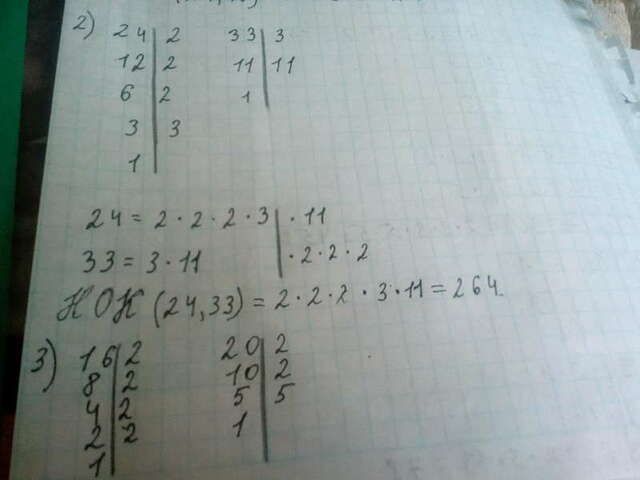 2) 24 | 2 33 | 3
12 | 2 11 | 11
6 | 2 1 |
3 | 3
1 |
24 = 2 · 2 · 2 · 3 | · 11
33 = 3 · 11 | · 2 · 2 · 2
НОК (24,33) = 2 · 2 · 2 · 3 · 11 = 264.
3) 16 | 2 20 | 2
8 | 2 10 | 2
4 | 2 5 | 5
2 | 2 1 |
1 |